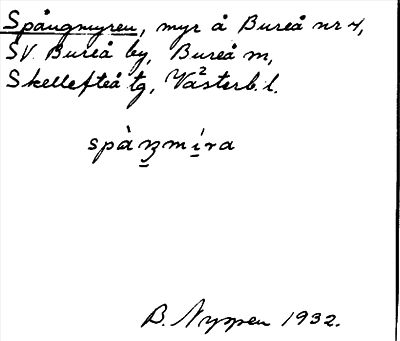 Spångmyren, myr å Bureå nr 4,
SV. Bureå by, Bureå sn,
Skellefteå tg, Västerb. l.
2
B. Nyppen 1932.